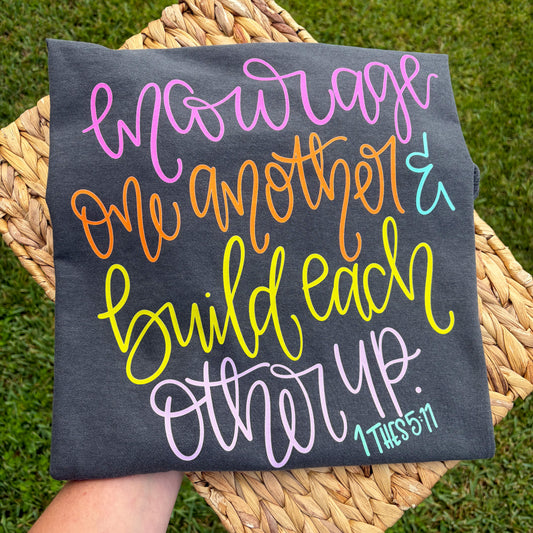 encourage
one another &
build each
other up.
1 THES 5:11